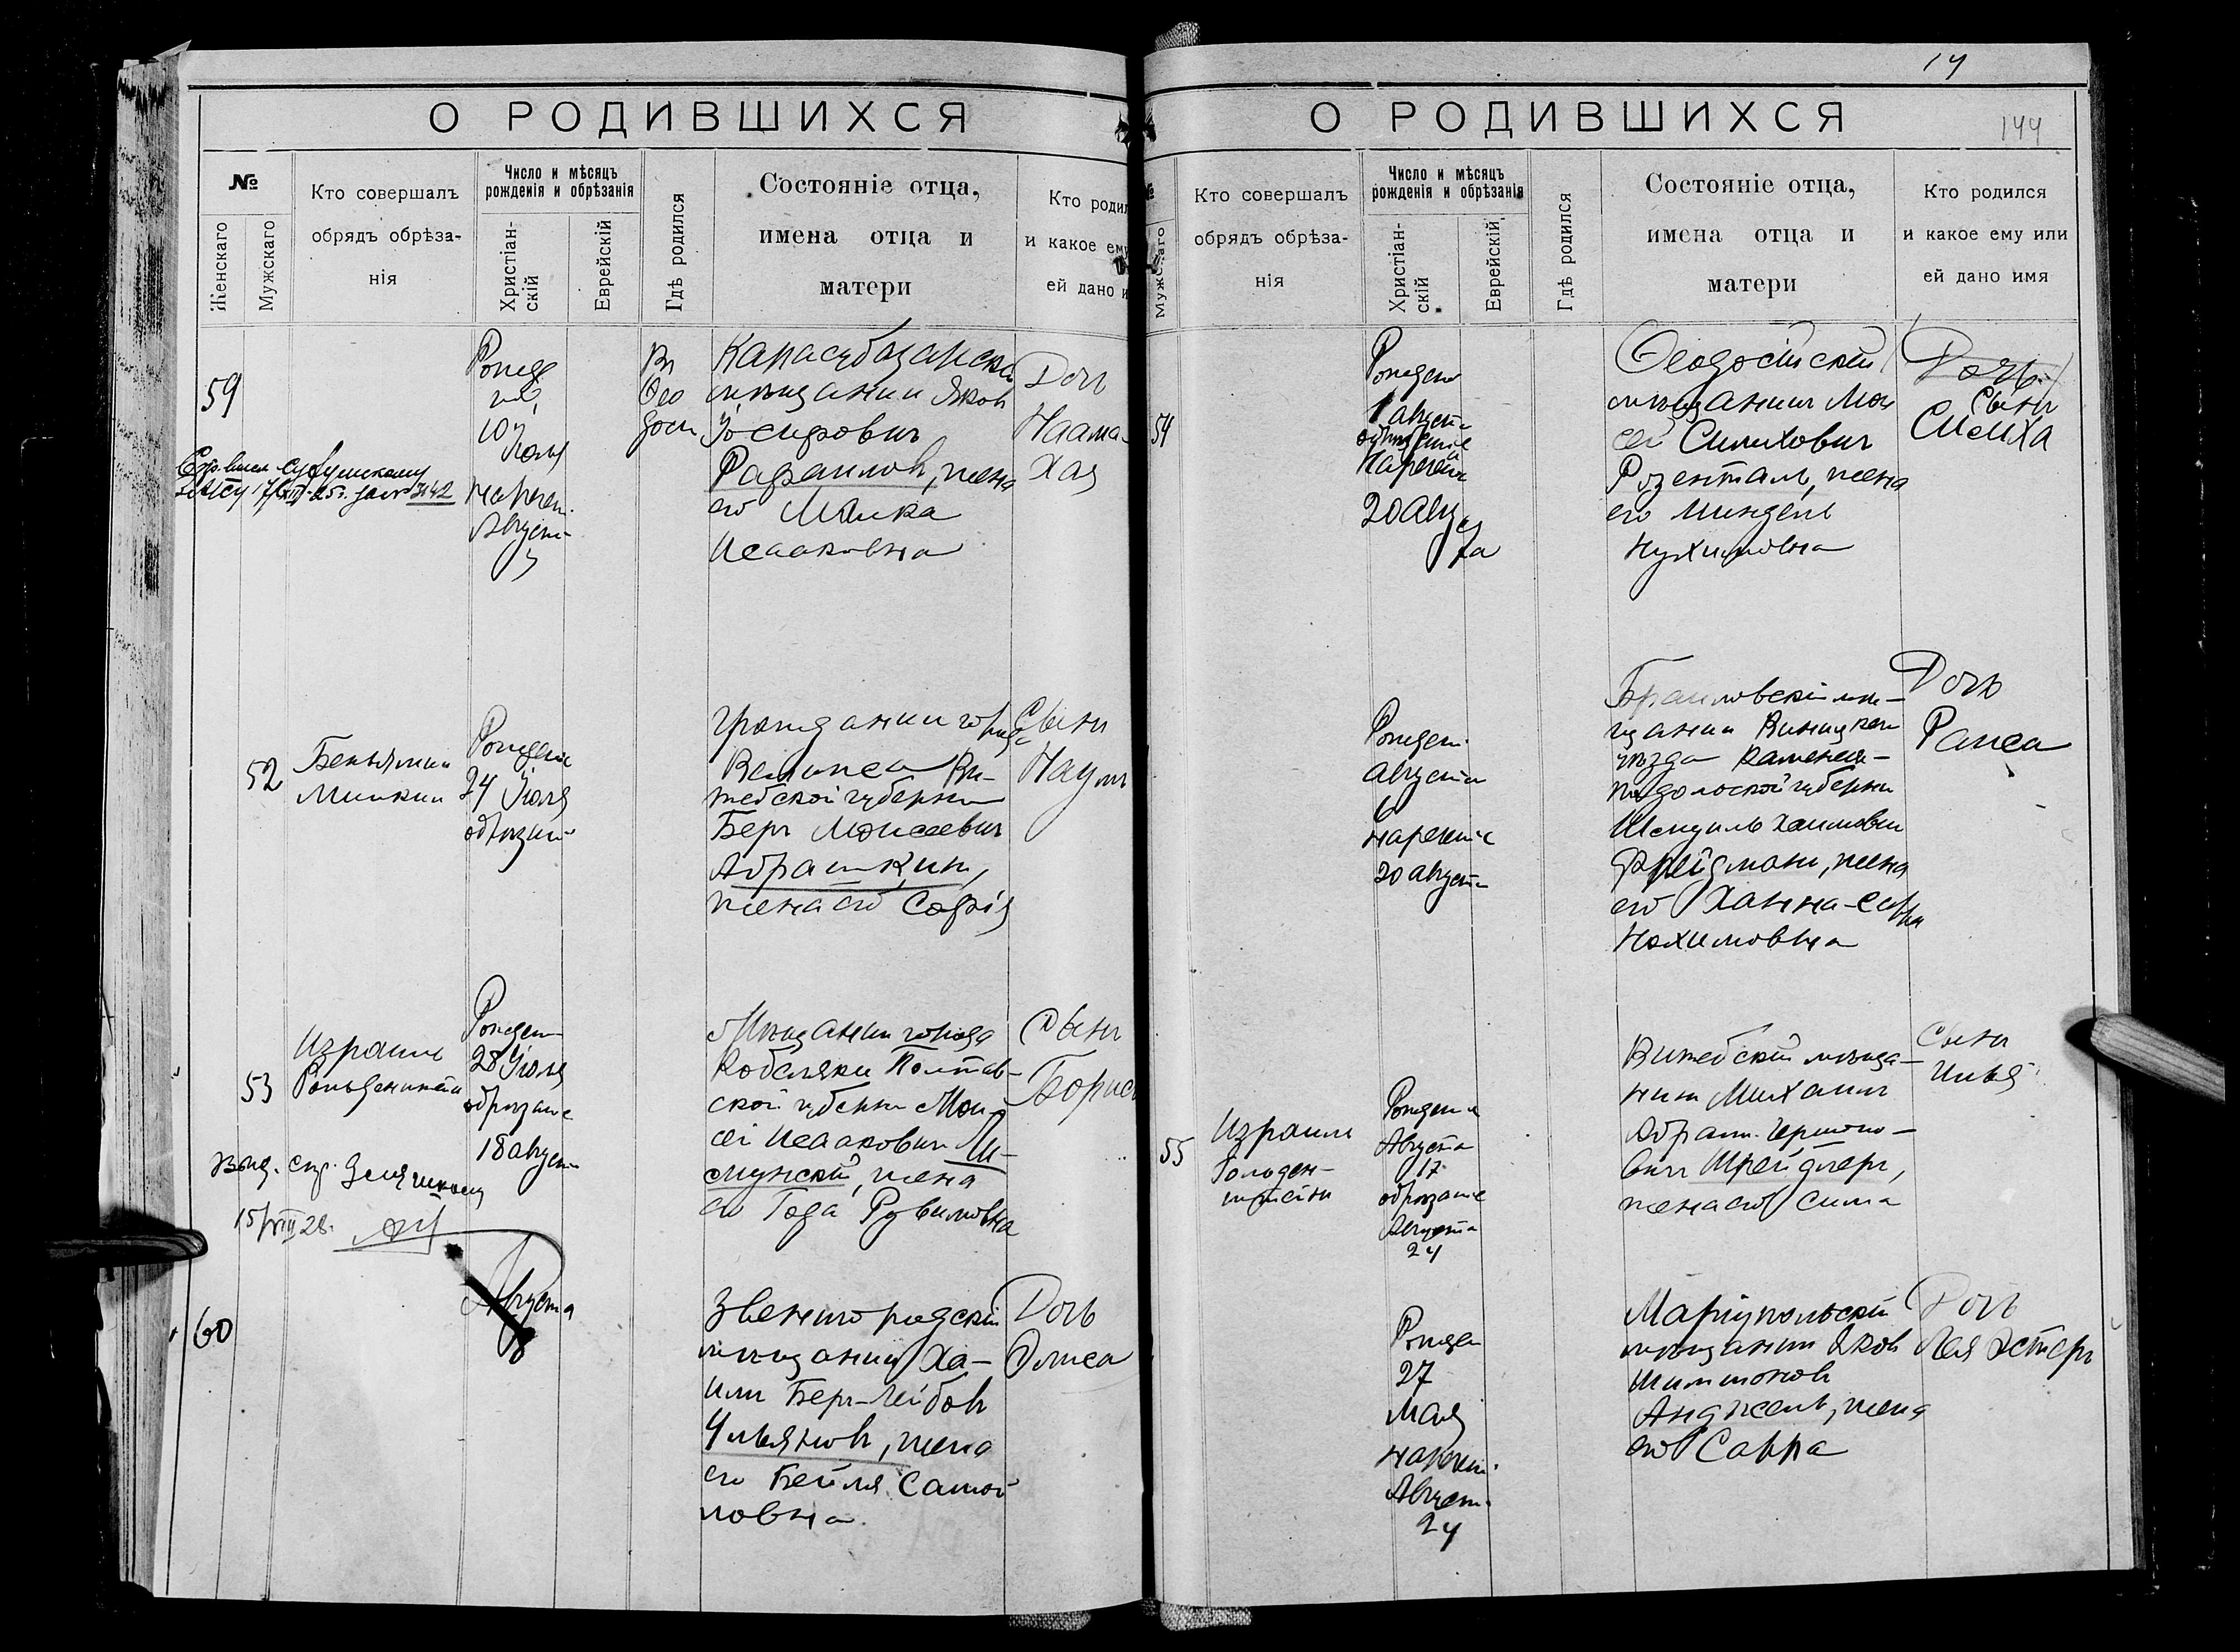 О РОДИВШИХСЯ
№
Женскаго
Мужскаго
Кто совершалъ
обрядъ обрѣза-
нія
Число и мѣсяцъ
рожденія и обрѣзанія
Христіан-
скій
Еврейскій
Гдѣ родился
Состояніе отца,
имена отца и
матери
Кто родил
и какое ему
ей дано и
59
10
Іюля
Августа
5
Въ
Ѳео
дос
Карасубазарск
мѣщанин Яков
Іосифович
Рафаилов, жена
его Малка
Исааковна
Дочь
Наама-
Хая
3142
52
Беньямин
Милкин
Рожденіе
24 Іюля
обрѣзаніе
гражданин города
Велижса Ви-
тебской губерніи
Беръ Моисеевич
Абрашкин,
жена его Софія
Сынъ
Наумъ
53
Израиль
Рожден
28 Іюля
обрѣзаніе
18 август
Мѣщанин города
Кобеляки Полтав-
ской губерн Мои-
сей Исаакович
жена
его Года Рувимовна
Сынъ
Борис
15/VIII 28.
60
Августа
8
Звенигородскій
мѣщанин Ха-
им Беръ-Лейбов
Ульянов, жена
его Бейля Самой
ловна
Дочь
Олиса
14
О РОДИВШИХСЯ
144
№
Мужскаго
Кто совершалъ
обрядъ обрѣза-
нія
Число и мѣсяцъ
рожденія и обрѣзанія
Христіан-
скій
Еврейскій
Гдѣ родился
Состояніе отца,
имена отца и
матери
Кто родился
и какое ему или
ей дано имя
54
Рожден
1 августа
20 Авгу
ста
Ѳеодосійскій
мѣщанин Мои
сей Симхович
Розенталь, жена
его Миндель
Нухимовна
Дочь
Сынъ
Симха
Рожден
августа
6
нареченіе
20 августа
Браиловскій мѣ-
щанин Винницкаго
уѣзда Каменец-
Подольской губерніи
Шмуль Хаимович
Фрейдман, жена
его Ханна-Сарра
Нахимовна
Дочь
Раиса
55
Израиль
Гольден-
штейн
Рожден
Августа
17
обрѣзаніе
Августа
24
Витебскій мѣща-
нин Михаил
Абрам. Гершоно-
вич Шрейдлер,
жена его Сима
Сынъ
Илья
Рожден
27
Мая
наречен.
Август.
24
Маріупольскій
мѣщанин Яков
Шимшонов
Анджель, жена
его Сарра
Дочь
Лея Эстеръ